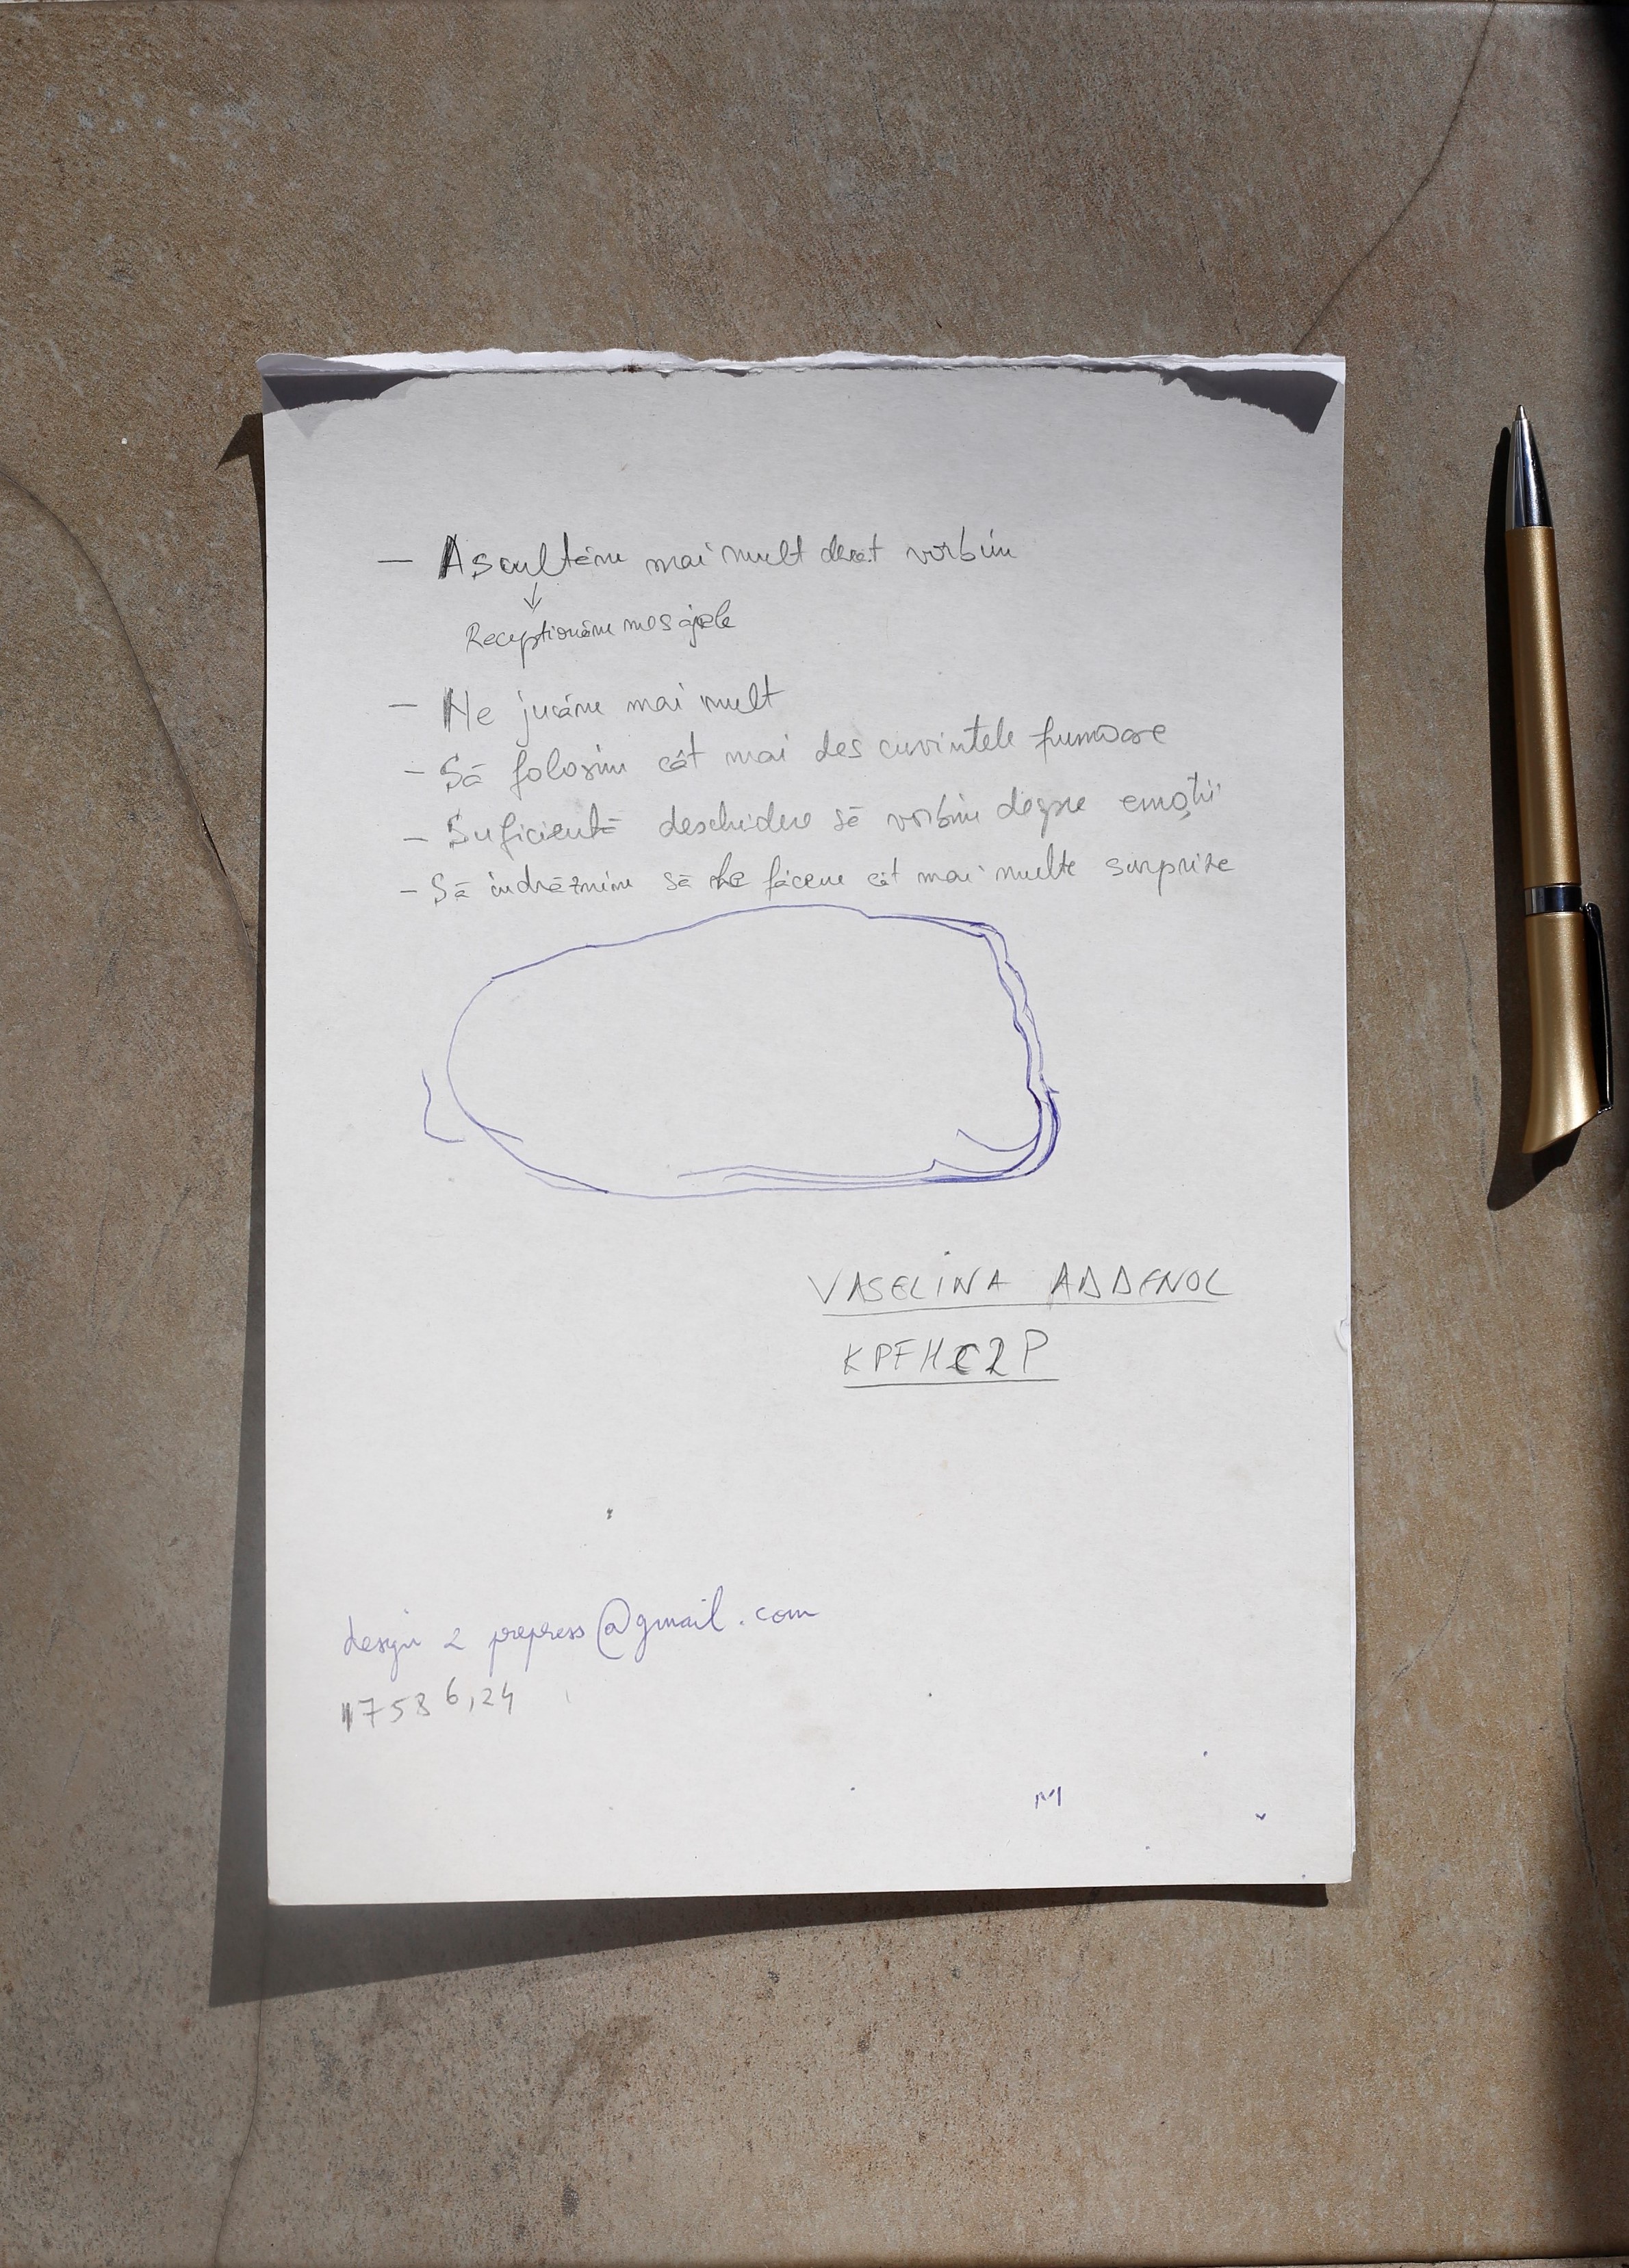 — Ascultăm mai mult decât vorbim
↓
Recepționăm mesajele
— Ne jucăm mai mult
— Să folosim cât mai des cuvintele frumoase
— Suficientă deschidere să vorbim despre emoții
— Să îndrăznim să ne facem cât mai multe surprize
VASELINA ADDENOL
KPFHC2P
design 2 prepress@gmail.com
17586,24
M